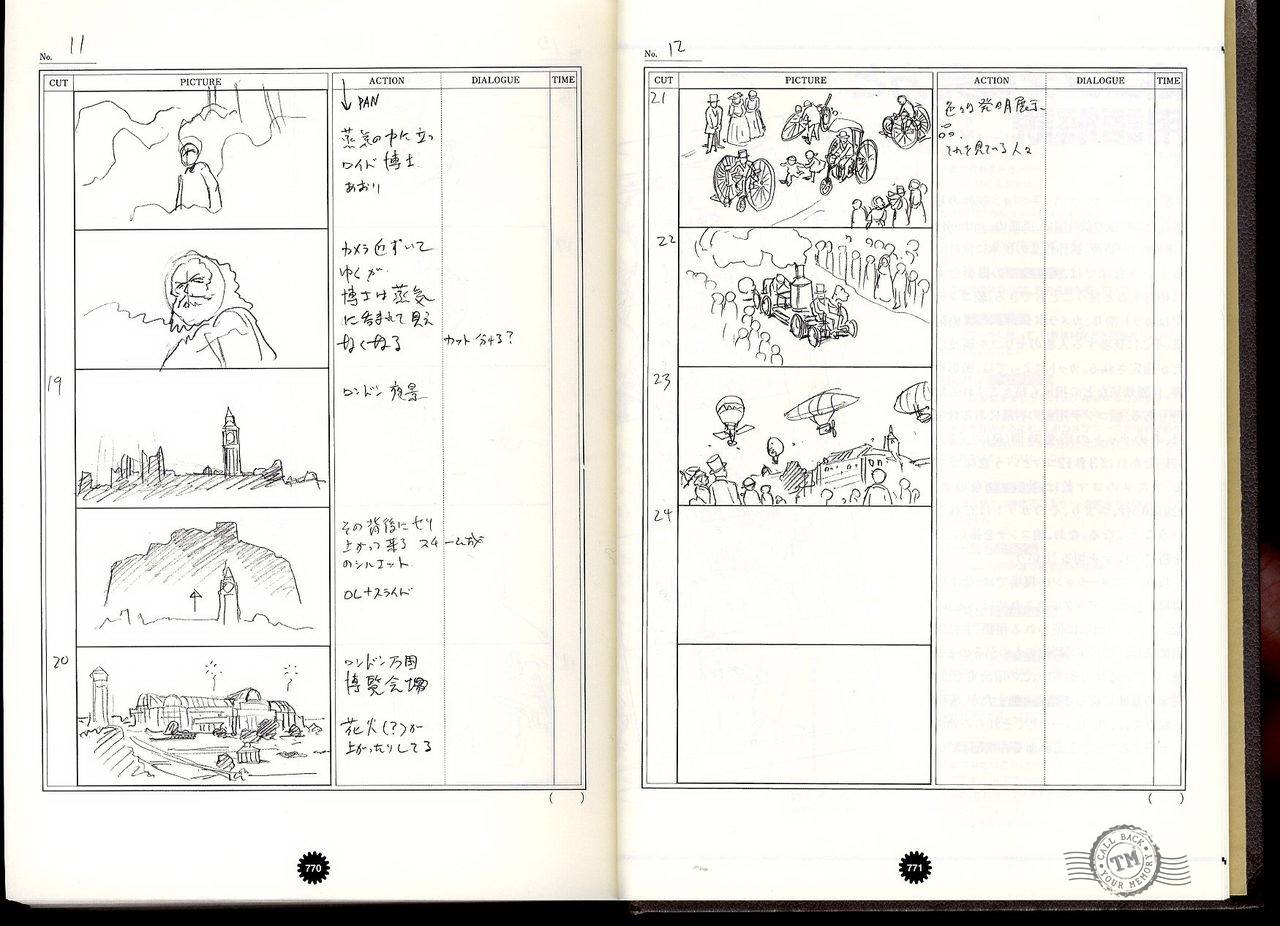 No. 11
CUT PICTURE ACTION DIALOGUE TIME
PAN
蒸気の中に立つ
ロイド博士
あおり
カメラ近ずいて
ゆくが
博士は蒸気
に呑まれて見え
なくなる
カット分ける?
19
ロンドン夜景
その背後にせり
上がって来るスチーム城
のシルエット
OL+スライド
20
ロンドン万国
博覧会場
花火(?)が
上がったりしてる
( )
770
No. 12
CUT PICTURE ACTION DIALOGUE TIME
21
色々な発明展示
品。
それを見ている人々
22
23
24
( )
771
CALL BACK
TM
YOUR MEMORY